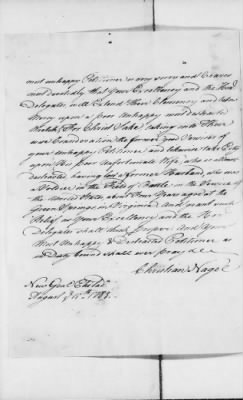 most unhappy Petitioner is very sorry and Craves
most devoutedly that your Excellency and the Honl
Delegates, will Extend Their Clemency and take
Mercy upon a poor Unhappy most distracted
Wretch, (For Christ Sake) taking into Their
wise Consideration the former good Services of
your Unhappy Petitioner and likewise take Pity
upon this poor Unfortunate Wife, who is almost
distracted having lost a former Husband, who was
a Soldier in the Field of Battle in the Service of
the United States about Four Years ago at the
Green Springs in Virginia. And grant such
Relief as your Excellency and the Honl
Delegates shall think proper. And Your
Most Unhappy & Distracted Petitioner as
in Duty bound shall ever pray &c &c
Christian Nagle
New Gaol Philada
August 15th 1785.